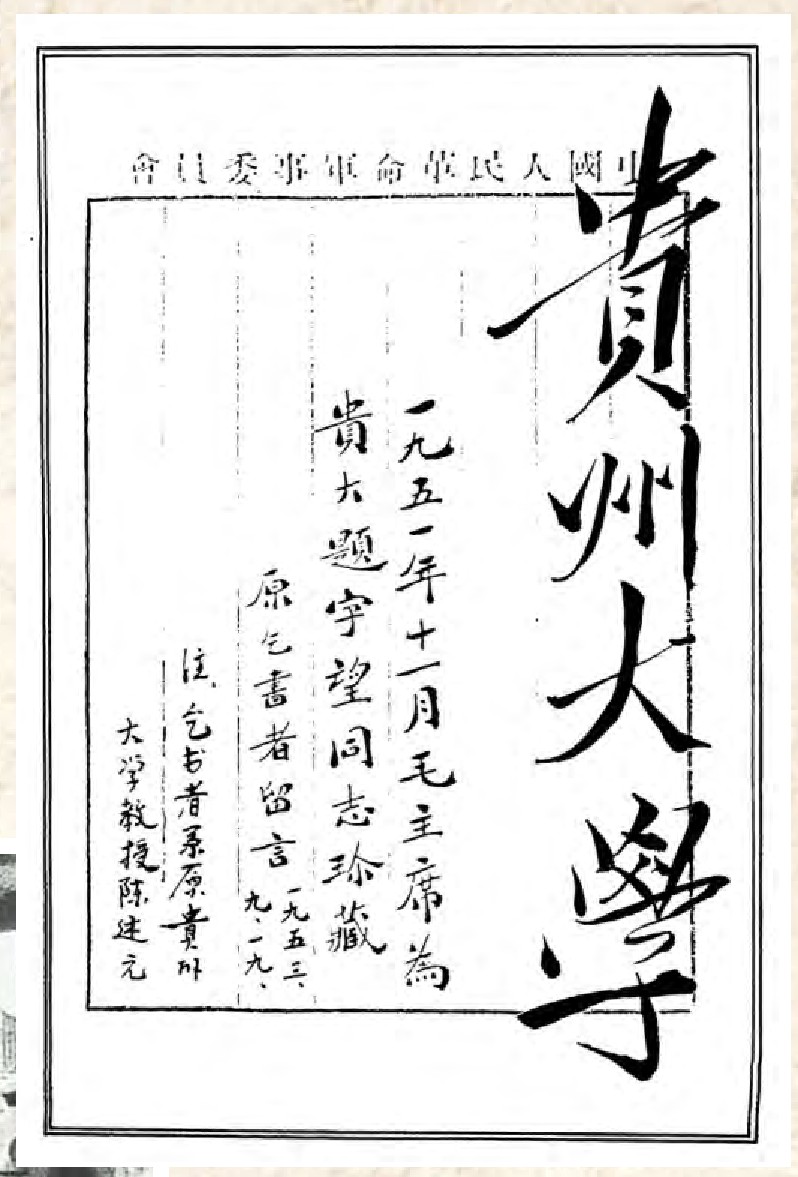 中國人民革命軍事委員會
貴州大學
一九五一年十一月毛主席為
貴大題字望同志珍藏
原乞書者留言
一九五三、
九、一九、
注、乞书者系原貴州
大学教授陈述元